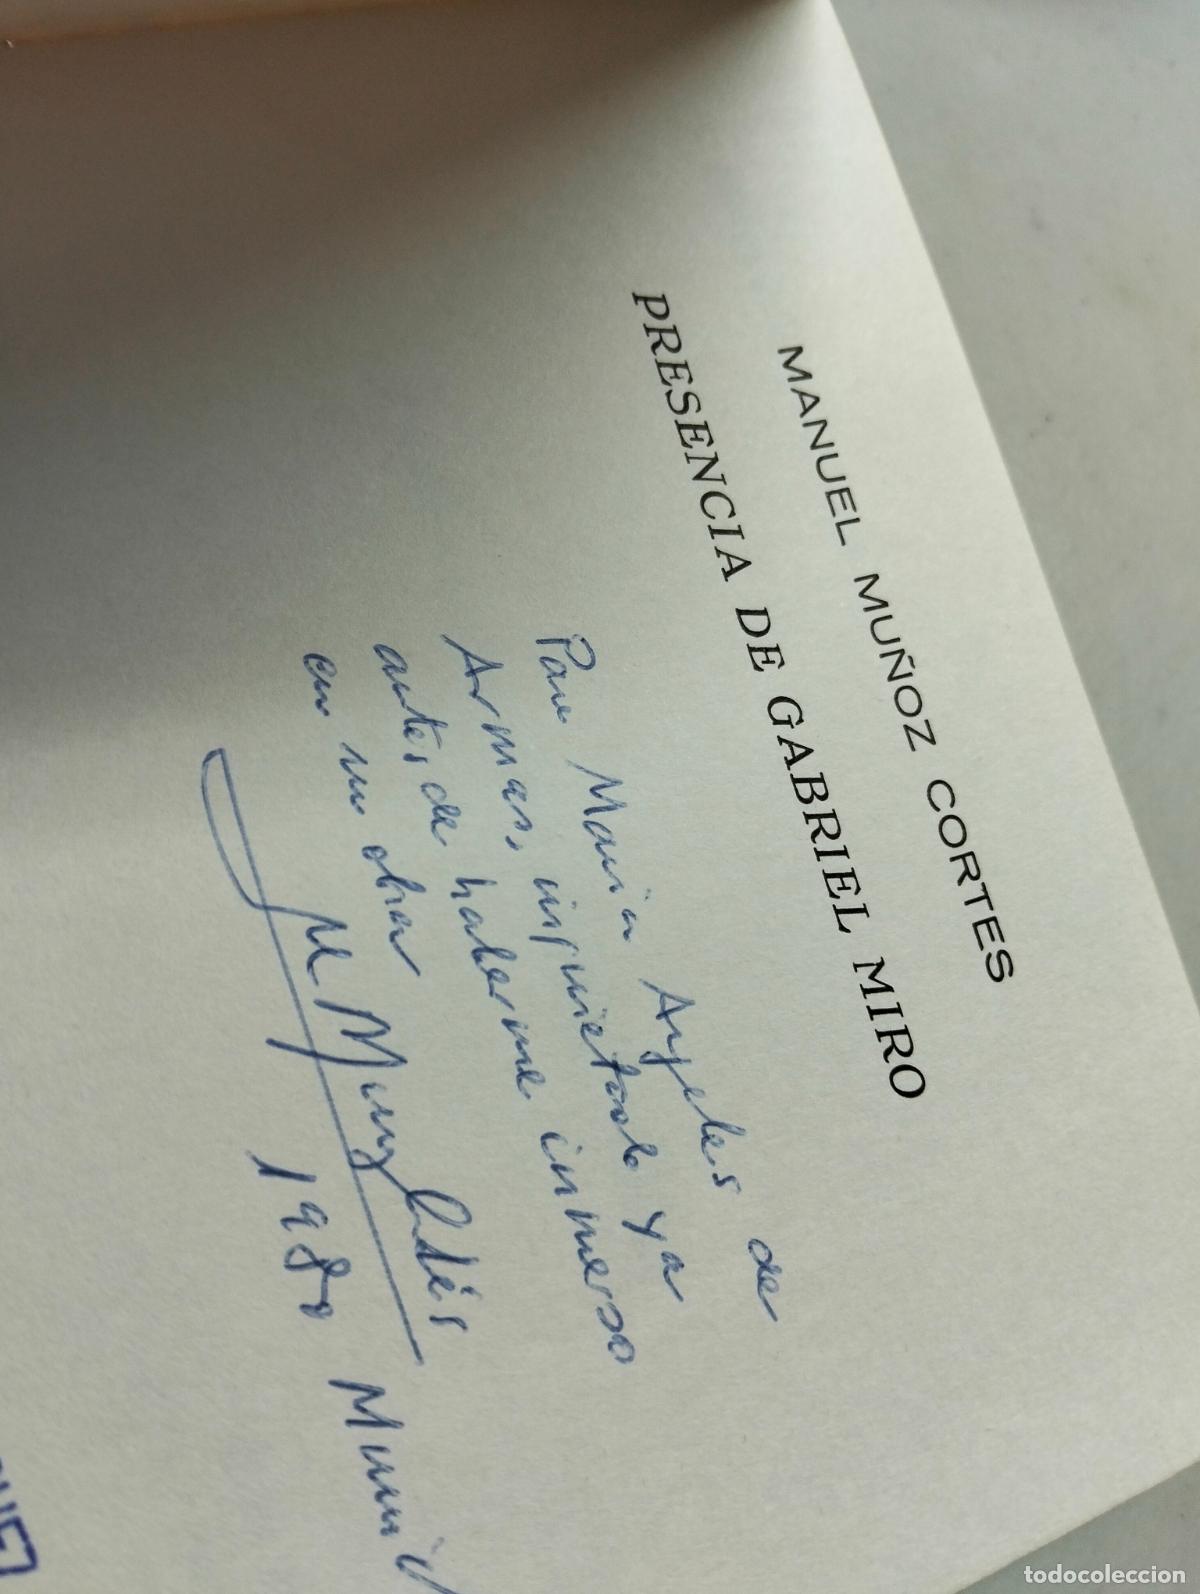 MANUEL MUÑOZ CORTES
PRESENCIA DE GABRIEL MIRO
Para Maria Angeles de
Armas, inquietado ya
antes de haberme inmerso
en su obra
M Muñoz Cortés
1980 Munich
todocoleccion